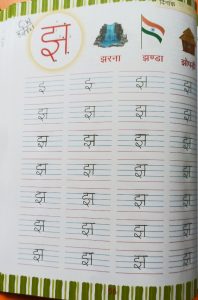 दिनांक
झ
झरना झण्डा झोपड़ी
झ झ झ
झ झ झ
झ झ झ
झ झ झ
झ झ झ
झ झ झ
झ झ झ